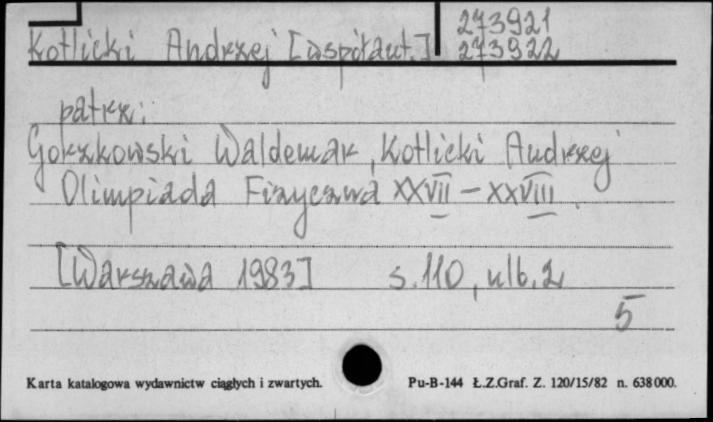 273921
Kotlicki Andrzej [współaut.] 273922
patrz:
Gorzkowski Waldemar, Kotlicki Andrzej
Olimpiada Fizyczna XXVII - XXVIII.
[Warszawa 1983] s. 110, nlb. 2
5
Karta katalogowa wydawnictw ciągłych i zwartych. Pu-B-144 Ł.Z.Graf. Z. 120/15/82 n. 638000.